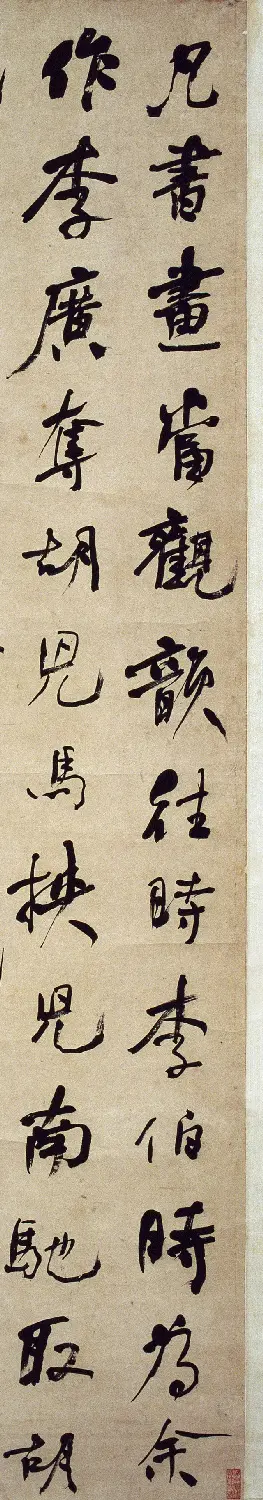 凡書畫當觀韻往時李伯時為余
作李廣奪胡兒馬挾兒南馳取胡